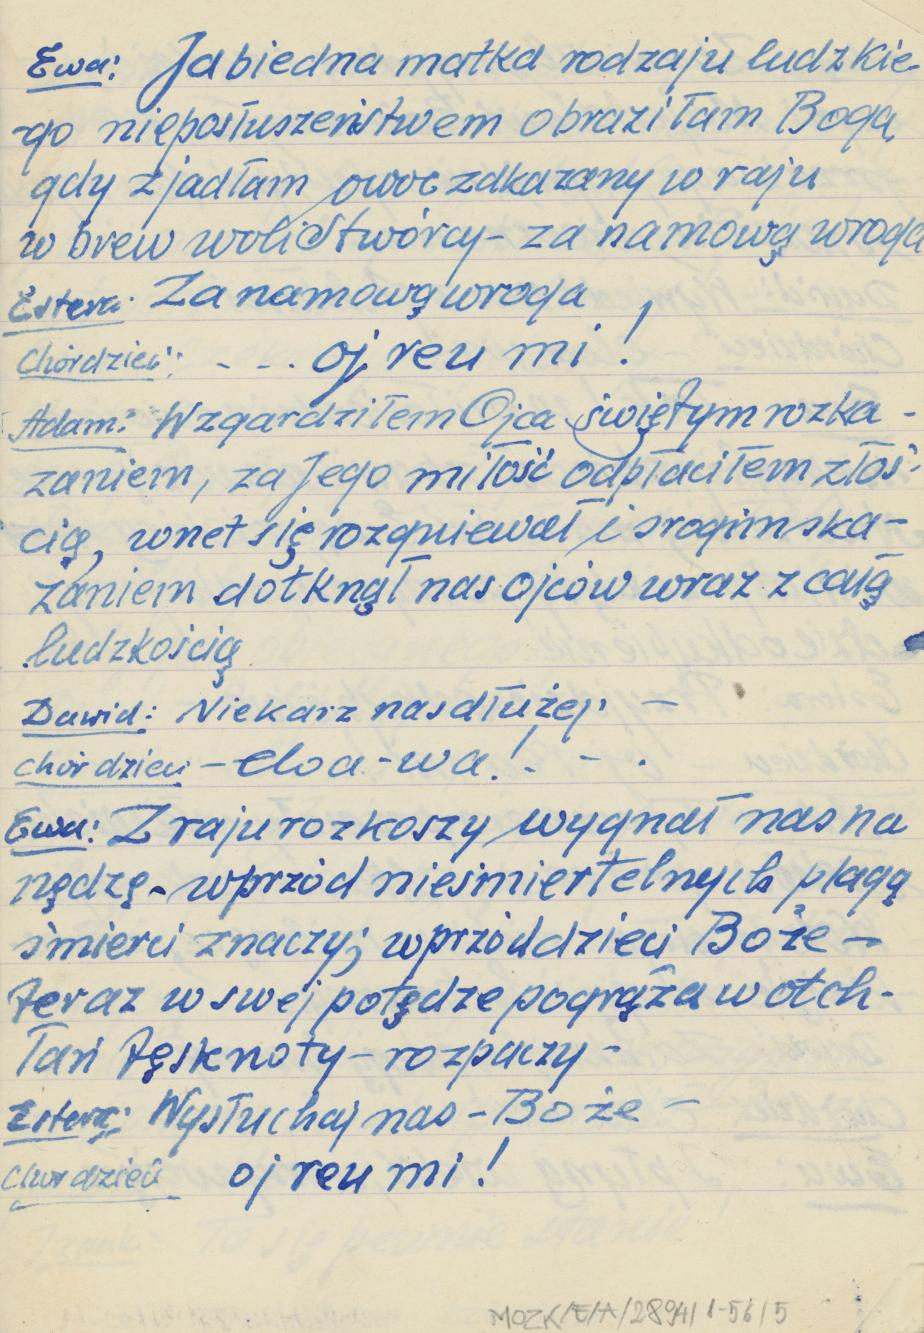 Ewa: Ja biedna matka rodzaju ludzkie-
go nieposłuszeństwem obraziłam Boga,
gdy zjadłam owoc zakazany w raju
w brew woli Stwórcy - za namową wroga
Estera: Za namową wroga
Chórdzieci: - ... oj reu mi!
Adam: Wzgardziłem Ojca świętym rozka-
zaniem, za Jego miłość odpłaciłem złoś-
cią, wnet się rozgniewał i srogim ska-
zaniem dotknął nas ojców wraz z całą
ludzkością
Dawid: Niekarz nas dłużej -
chórdzieci - eloa-wa! - - .
Ewa: Z raju rozkoszy wygnał nas na
nędzę - wprzód nieśmiertelnych plagą
śmierci znaczy; wprzód dzieci Boże -
teraz w swej potędze pogrąża w otch-
łań tęsknoty - rozpaczy -
Estera: Wysłuchaj nas - Boże -
Chórdzieci oj reu mi!
MOZK/E/A/2894/1-56/5